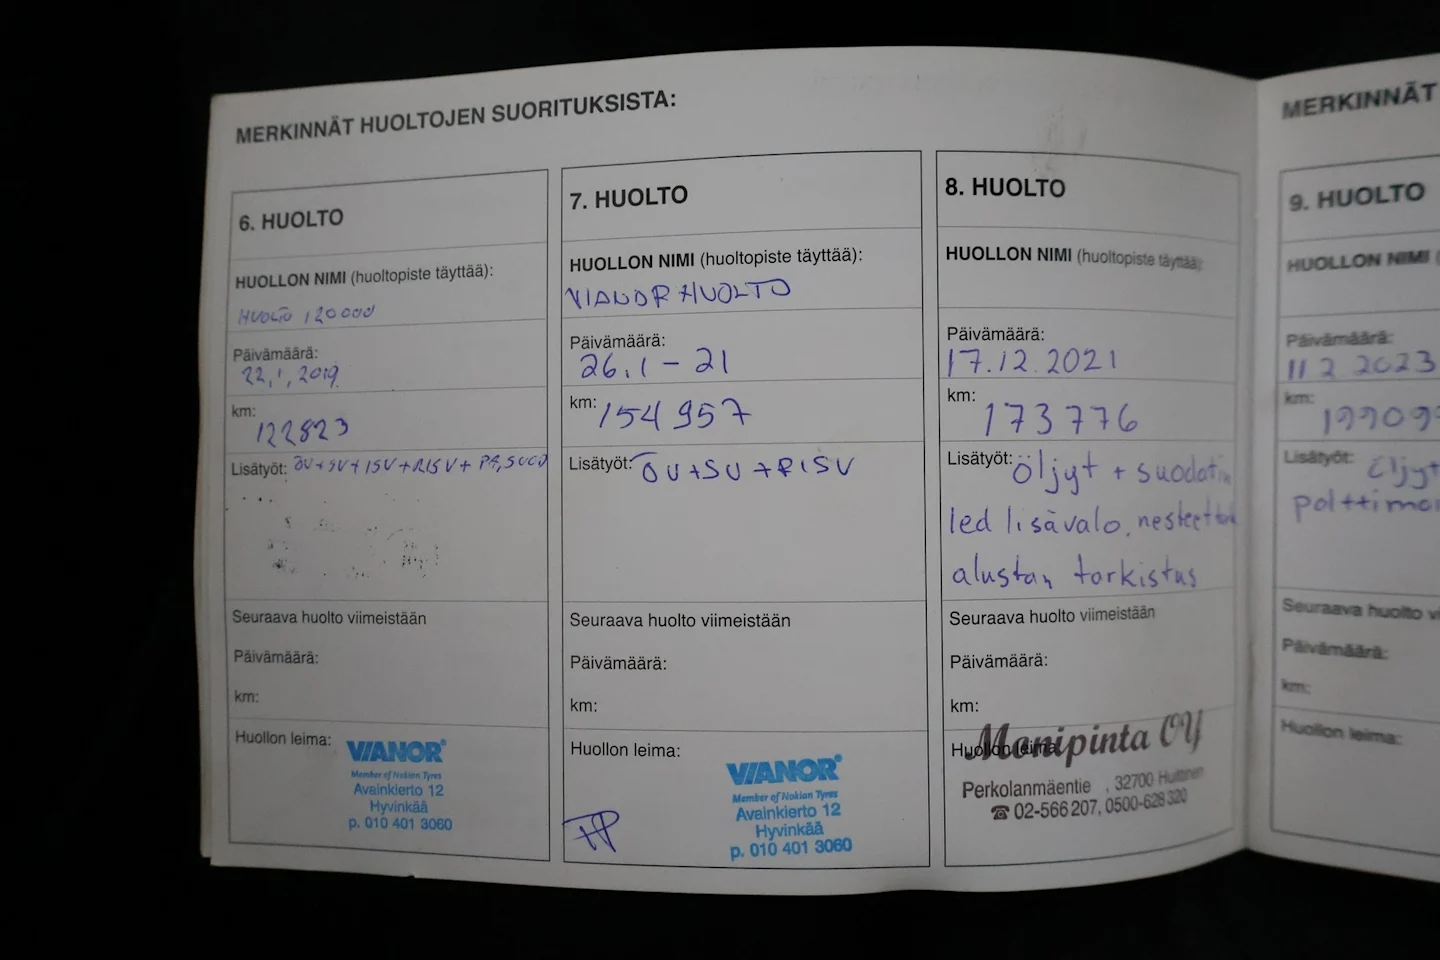 MERKINNÄT HUOLTOJEN SUORITUKSISTA:
6. HUOLTO
HUOLLON NIMI (huoltopiste täyttää):
HUOLTO 120000
Päivämäärä:
22,1,2019
km:
122823
Lisätyöt: ÖV+SV+ISV+RISV+ PA,SUOD
Seuraava huolto viimeistään
Päivämäärä:
km:
Huollon leima:
VIANOR
Member of Nokian Tyres
Avainkierto 12
Hyvinkää
p. 010 401 3060
7. HUOLTO
HUOLLON NIMI (huoltopiste täyttää):
VIANOR HUOLTO
Päivämäärä:
26.1-21
km: 154957
Lisätyöt: ÖV+SV+RISV
Seuraava huolto viimeistään
Päivämäärä:
km:
Huollon leima:
VIANOR
Member of Nokian Tyres
Avainkierto 12
Hyvinkää
p. 010 401 3060
8. HUOLTO
HUOLLON NIMI (huoltopiste täyttää):
Päivämäärä:
17.12.2021
km:
173776
Lisätyöt: öljyt + suodatin
led lisävalo,
alustan tarkistus
Seuraava huolto viimeistään
Päivämäärä:
km:
Huollon leima:
Monipinta OY
Perkolanmäentie , 32700 Huittinen
☎ 02-566 207, 0500-628 320
MERKINNÄT
9. HUOLTO
HUOLLON NIMI
Päivämäärä:
11 2 2023
km:
19909
Lisätyöt: öljyt
Seuraava huolto
Päivämäärä:
km:
Huollon leima: